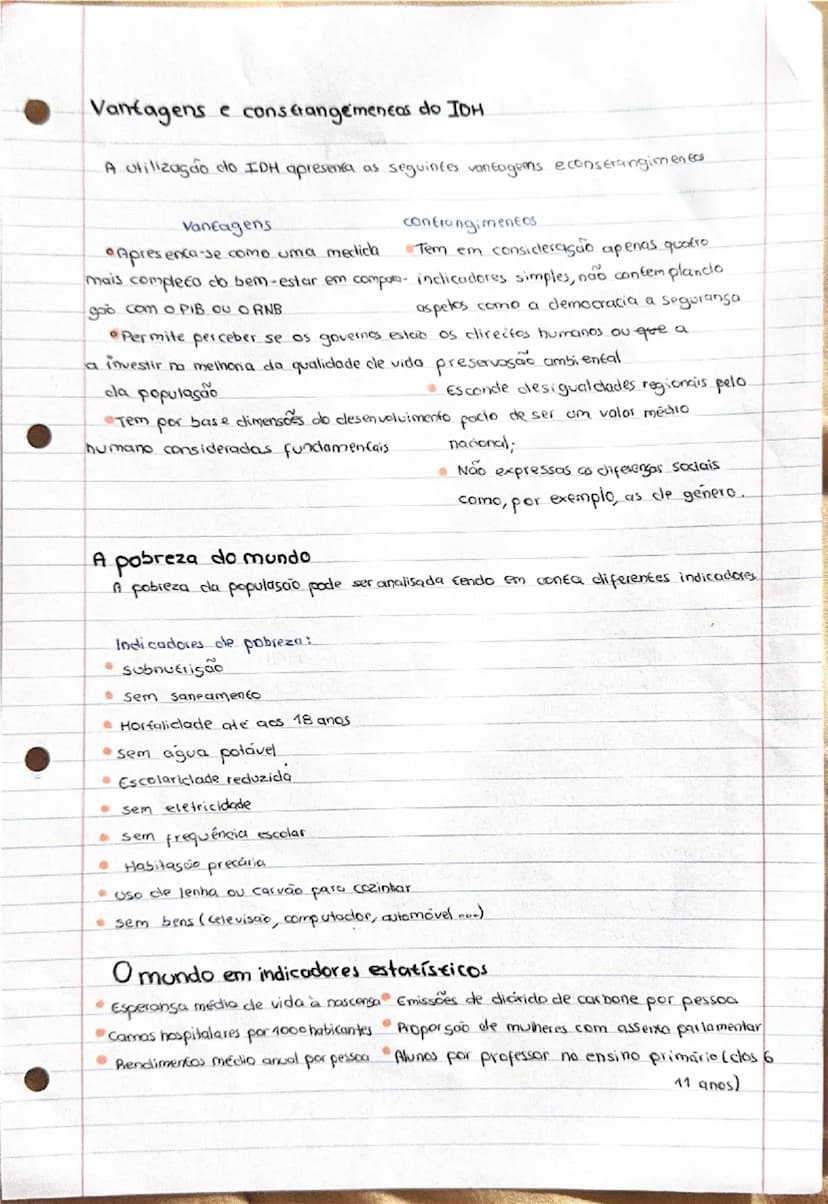 Vantagens e constrangementos do IDH
A utilização do IDH apresenta as seguintes vantagens e constrangimentos
Vantagens
• Apresenta-se como uma medida
mais completa do bem-estar em compara-
ção com o PIB ou o RNB
• Permite perceber se os governos estão
a investir na melhoria da qualidade de vida
da população
• Tem por base dimensões do desenvolvimento
humano consideradas fundamentais
contrangimentos
• Tem em consideração apenas quatro
indicadores simples, não contemplando
aspetos como a democracia a segurança
os direitos humanos ou que a
preservação ambiental
• Esconde desigualdades regionais pelo
facto de ser um valor médio
nacional;
• Não expressas as diferenças sociais
como, por exemplo, as de género.
A pobreza do mundo
A pobreza da população pode ser analisada tendo em conta diferentes indicadores
Indicadores de pobreza:
• Subnutrição
• Sem saneamento
• Mortalidade até aos 18 anos
• sem água potável
• Escolaridade reduzida
• sem eletricidade
• sem frequência escolar
• Habitação precária
• uso de lenha ou carvão para cozinhar
• sem bens (televisão, computador, automóvel ...)
O mundo em indicadores estatísticos
• Esperança média de vida à nascença • Emissões de dióxido de carbone por pessoa
• Camas hospitalares por 1000 habitantes • Proporção de mulheres com assento parlamentar
• Rendimentos médio anual por pessoa • Alunos por professor no ensino primário (dos 6
11 anos)